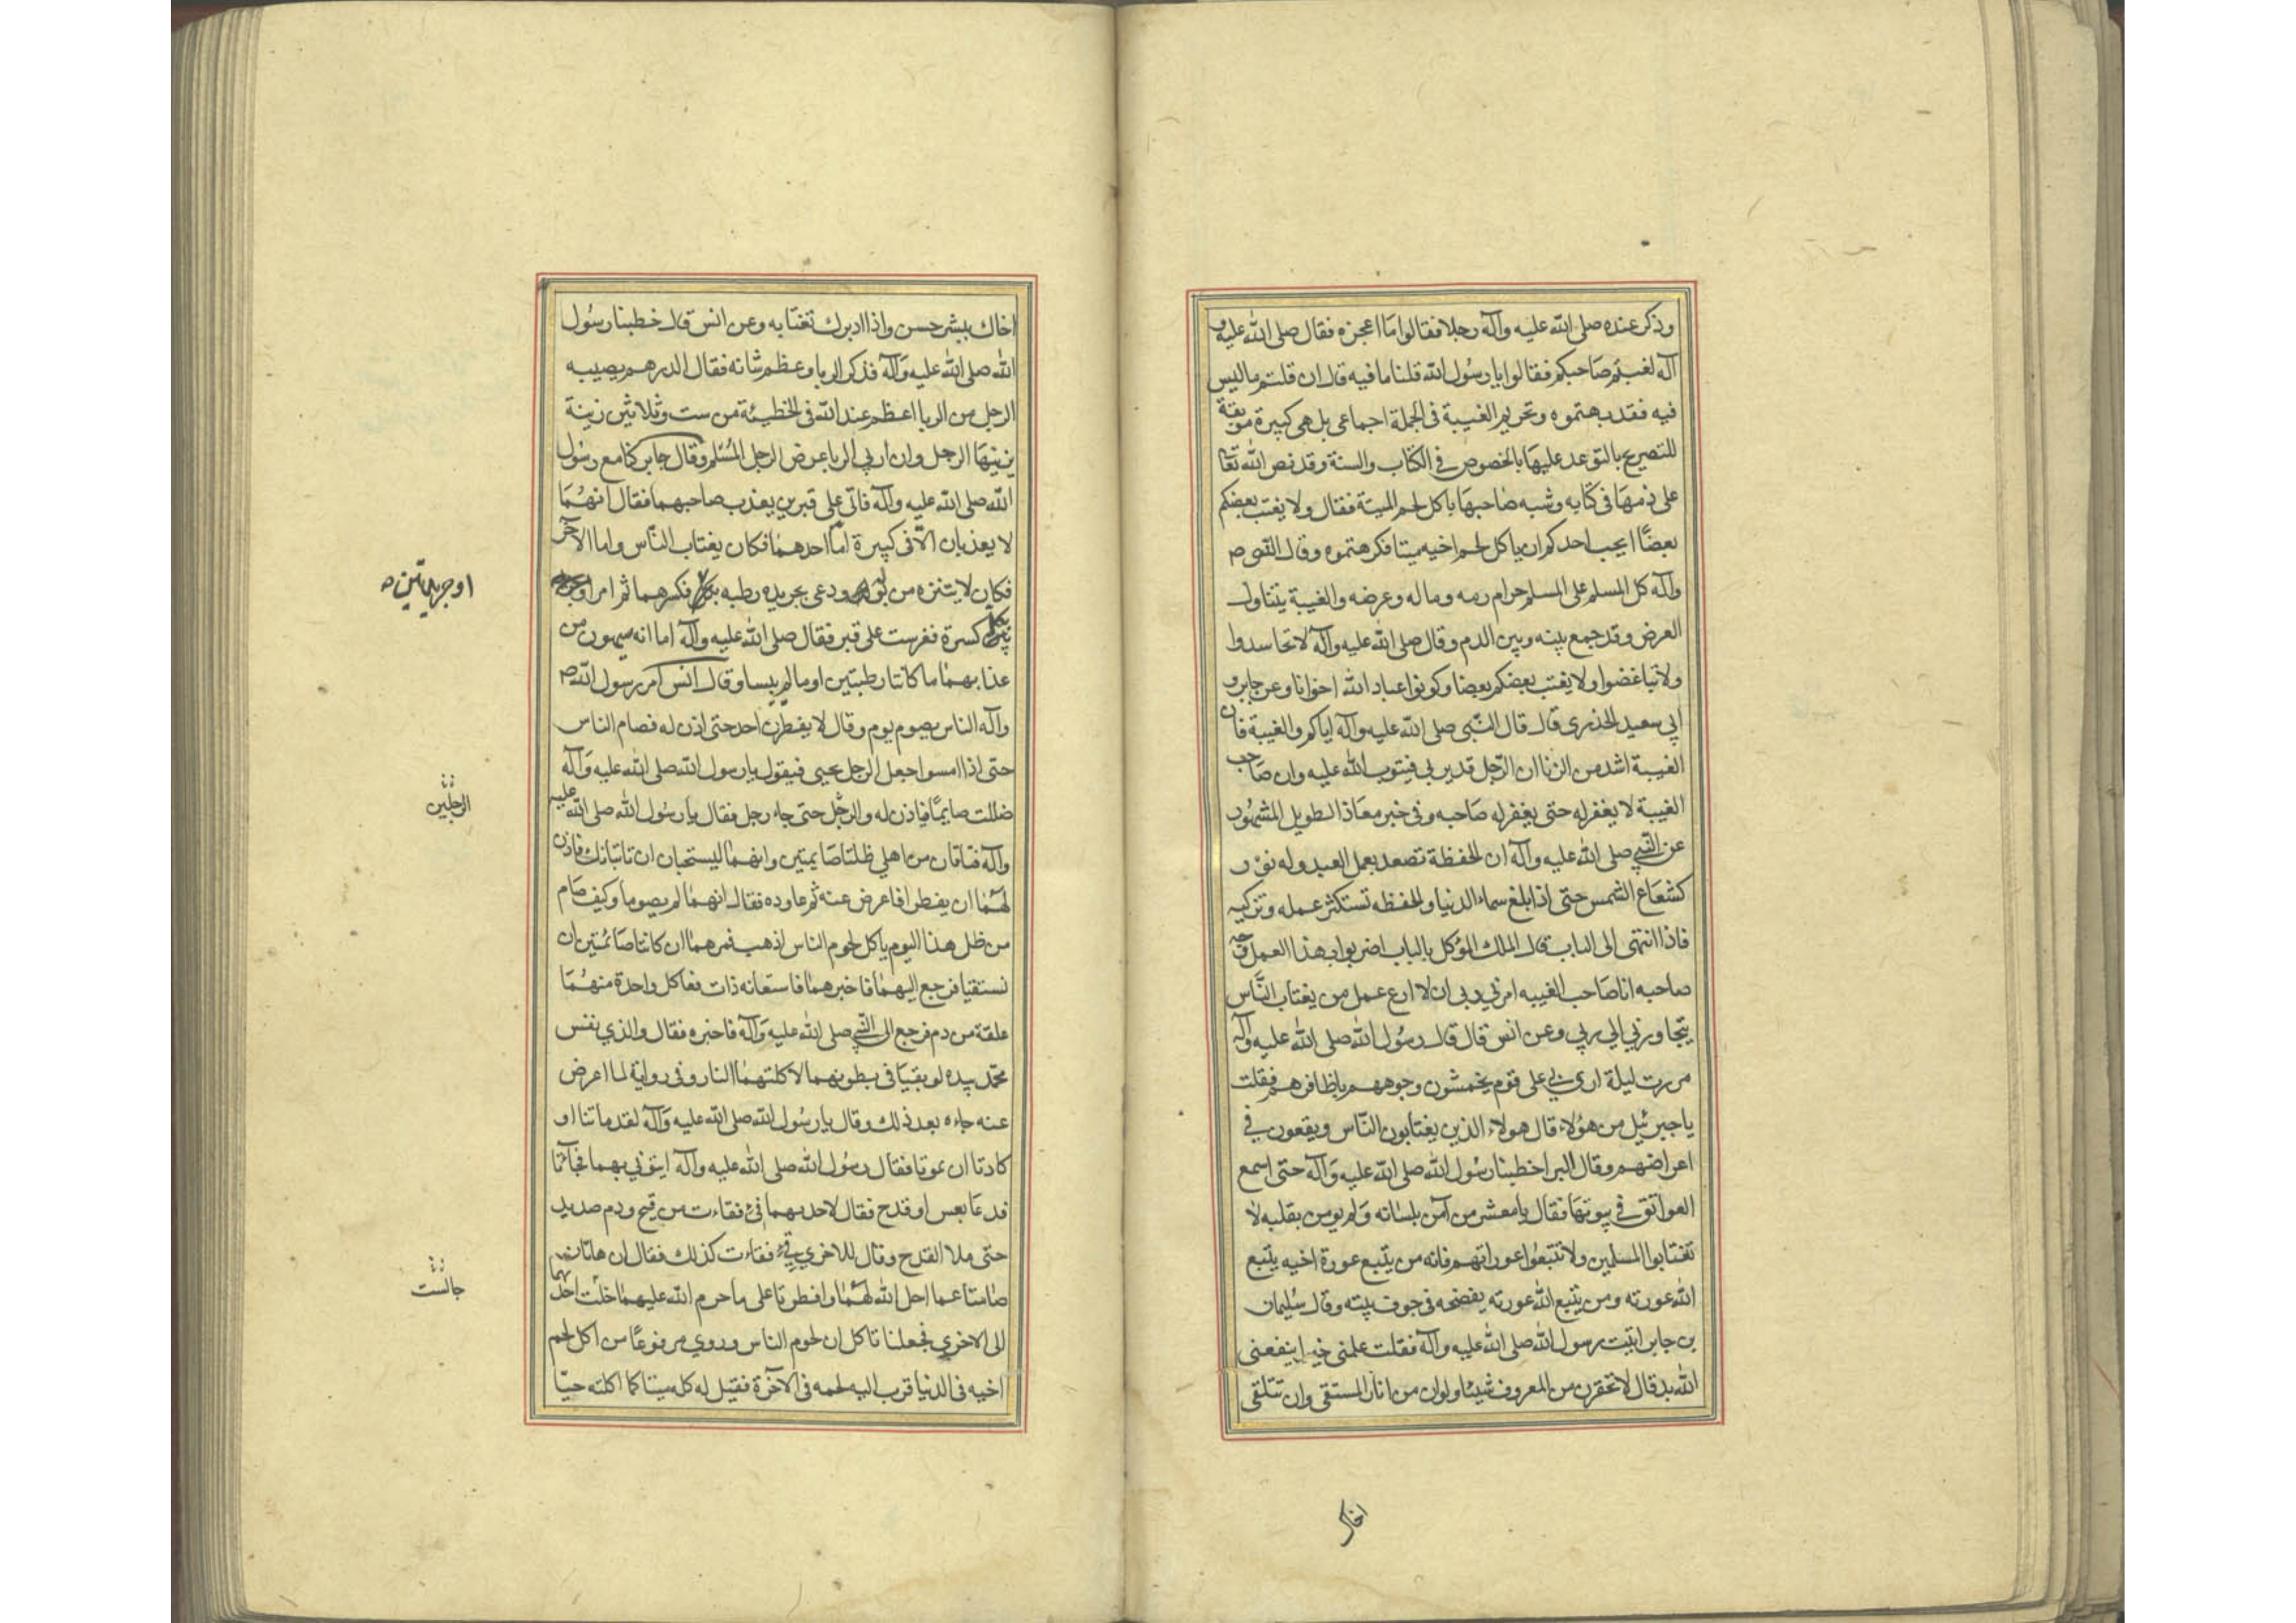 وذكر عنده صلى الله عليه وآله رجلا فقالوا ما اعجزه فقال صلى الله عليه و
آله لغبتم صاحبكم فقالوا يا رسول الله قلنا ما فيه قال ان قلتم ما ليس
فيه فقد بهتموه وتحريم الغيبة فى الجملة اجماعى بل هى كبيرة موبقة
للتصريح بالتوعد عليها بالخصوص فى الكتاب والسنة وقد نص الله تعا
على ذمها فى كتابه وشبه صاحبها باكل لحم الميتة فقال ولا يغتب بعضكم
بعضًا ايحب احدكم ان ياكل لحم اخيه ميتا فكرهتموه وقال النبى ص
وآله كل المسلم على المسلم حرام دمه وماله وعرضه والغيبة يتناول
العرض وقد جمع بينه وبين الدم وقال صلى الله عليه وآله لا تحاسدوا
ولا تباغضوا ولا يغتب بعضكم بعضا وكونوا عباد الله اخوانا وعن جابر و
ابي سعيد الخذرى قال قال النبى صلى الله عليه وآله اياكم والغيبة فان
الغيبة اشد من الزنا ان الرجل قد يزني فيتوب الله عليه وان صاحب
الغيبة لا يغفر له حتى يغفر له صاحبه وفى خبر معاذ الطويل المشهور
عن النبي صلى الله عليه وآله ان الحفظة تصعد بعمل العبد وله نور
كشعاع الشمس حتى اذا بلغ سماء الدنيا والحفظه تستكثر عمله وتزكيه
فاذا انتهى الى الباب قال الملك الموكل بالباب اضربوا بهذا العمل وجه
صاحبه انا صاحب الغيبه امرني ربى ان لا ادع عمل من يغتاب الناس
يتجاوزني الي ربي وعن انس قال قال رسول الله صلى الله عليه وآله
مررت ليلة اسرى بي على قوم يخمشون وجوههم باظافرهم فقلت
يا جبرئيل من هؤلاء قال هولاء الذين يغتابون الناس ويقعون في
اعراضهم وقال البرا خطبنا رسول الله صلى الله عليه وآله حتى اسمع
العواتق في بيوتها فقال يا معشر من آمن بلسانه ولم يومن بقلبه لا
تغتابوا المسلمين ولا تتبعوا عوراتهم فانه من يتبع عورة اخيه يتبع
الله عورته ومن يتبع الله عورته يفضحه فى جوف بيته وقال سليمان
بن جابر اتيت رسول الله صلى الله عليه وآله فقلت علمنى خيرا ينفعنى
الله به قال لا تحقرن من المعروف شيئا ولو ان من المستقى وان تتلقى
اخاك
اخاك ببشر حسن واذا ادبر لا تغتابه وعن انس قال خطبنا رسول
الله صلى الله عليه وآله فذكر الربا وعظم شانه فقال الدرهم يصيبه
الرجل من الربا اعظم عند الله فى الخطيئة من ست وثلاثين زينة
يزينها الرجل وان اربي الربا عرض الرجل المسلم وقال جابر كنا مع رسول
الله صلى الله عليه وآله فاتى على قبرين يعذب صاحبهما فقال انهما
لا يعذبان الا فى كبيرة اما احدهما فكان يغتاب الناس واما الآخر
فكان لا يتنزه من بوله ودعى بجريده رطبه فكسرهما ثم امر
بكل كسرة فغرست على قبر فقال صلى الله عليه وآله اما انه سيهون من
عذابهما ما كانتا رطبتين او ما لم ييبسا وقال انس امر رسول الله ص
وآله الناس بصوم يوم وقال لا يفطرن احد حتى اذن له فصام الناس
حتى اذا امسوا جعل الرجل يجيى فيقول يا رسول الله صلى الله عليه وآله
ظللت صايمًا فياذن له والرجل حتى جاء رجل فقال يا رسول الله صلى الله عليه
وآله فتاتان من اهلي ظلتا صايمتين وانهما ليستحيان ان تاتيانك فاذن
لهما ان يفطرا فاعرض عنه ثم عاوده فقال انهما لم يصوما وكيف صام
من ظل هذا اليوم ياكل لحوم الناس اذهب فمرهما ان كانتا صائمتين ان
تستقيا فرجع اليهما فاخبرهما فاستعانه ذات فعا كل واحدة منهما
علقة من دم فرجع الى النبي صلى الله عليه وآله فاخبره فقال والذي نفس
محمد بيده لو بقيتا فى بطونهما لاكلتهما النار وفى رواية لما اعرض
عنه جاءه بعد ذلك وقال يا رسول الله صلى الله عليه وآله لقد ماتتا او
كادتا ان تموتا فقال رسول الله صلى الله عليه وآله ايتوني بهما فجاءتا
فدعا بعس او قدح فقال لاحديهما قئ فقاءت من قيح ودم صديد
حتى ملا القدح وقال للاخري قئ فقاءت كذلك فقال ان هاتان
صامتا عما احل الله لهما وافطرتا على ما حرم الله عليهما جلست احدهما
الى الاخري فجعلتا تاكلان لحوم الناس وروي مرفوعًا من اكل لحم
اخيه فى الدنيا قرب اليه لحمه فى الآخرة فقيل له كله ميتا كما اكلته حيّا
او جريدتين
الرجلين
جالست